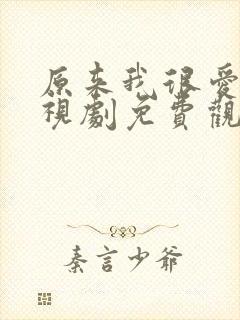 原来我很爱
視劇免費觀
秦言少爷